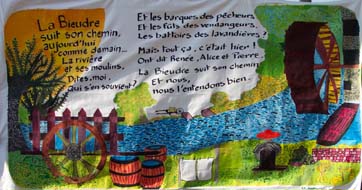 La Bieudre
suit son chemin,
aujourd'hui
comme demain...
La rivière
et ses moulins,
Dites-moi,
Qui s'en souvient?
Et les barques des pêcheurs
Et les fûts des vendangeurs,
Les battoirs des lavandières?
Mais tout ça, c'était hier!
Ont dit Renée, Alice et Pierre.
La Bieudre suit son chemin
Et nous,
nous l'entendons bien.